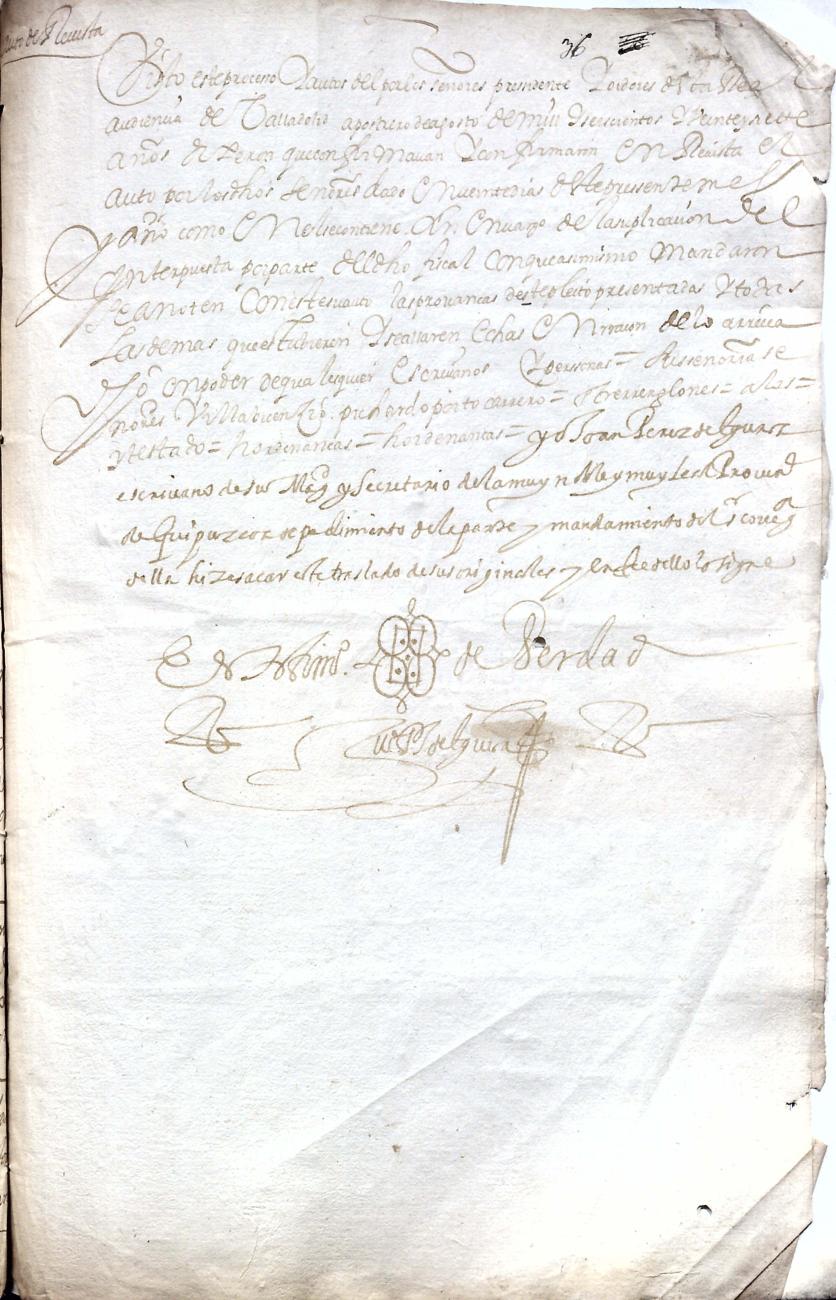 auto de Revista
36
Visto este proceso Y autos del por los señores presidente Y oidores desta Real
audiencia de Valladolid a postrero de agosto de mill Y seiscientos Y veinte y siete
años dixeron que confirmavan Y confirmaron En Revista el
auto por los dhos señores dado En veinte dias deste pressente mes
y año como En el se contiene sin Envargo de la suplicaçion del
Ynterpuesta por parte del dho fiscal Con que asimismo mandaron
se anoten Con este su auto las provanças deste pleito presentadas Y todas
las demas que estubieren Y se allaren Echas En Raçon de lo arriva
dho En poder de qualesquier Escrivanos Y personas = su señoria se
nores Villabicencio. pichardo portocarrero = entrerrenglones = a las =
y testado = hordenancas = hordenancas = yo Joan Perez de Eguraz
escrivano de su Magd y Secretario de la muy noble y muy leal Provinçia
de Guipuzcoa de pedimiento de la parte y mandamiento del sr correg
della hize sacar este traslado de sus originales y en fe dello lo signe
En testimo. de Verdad
Ju° Pz de Egura